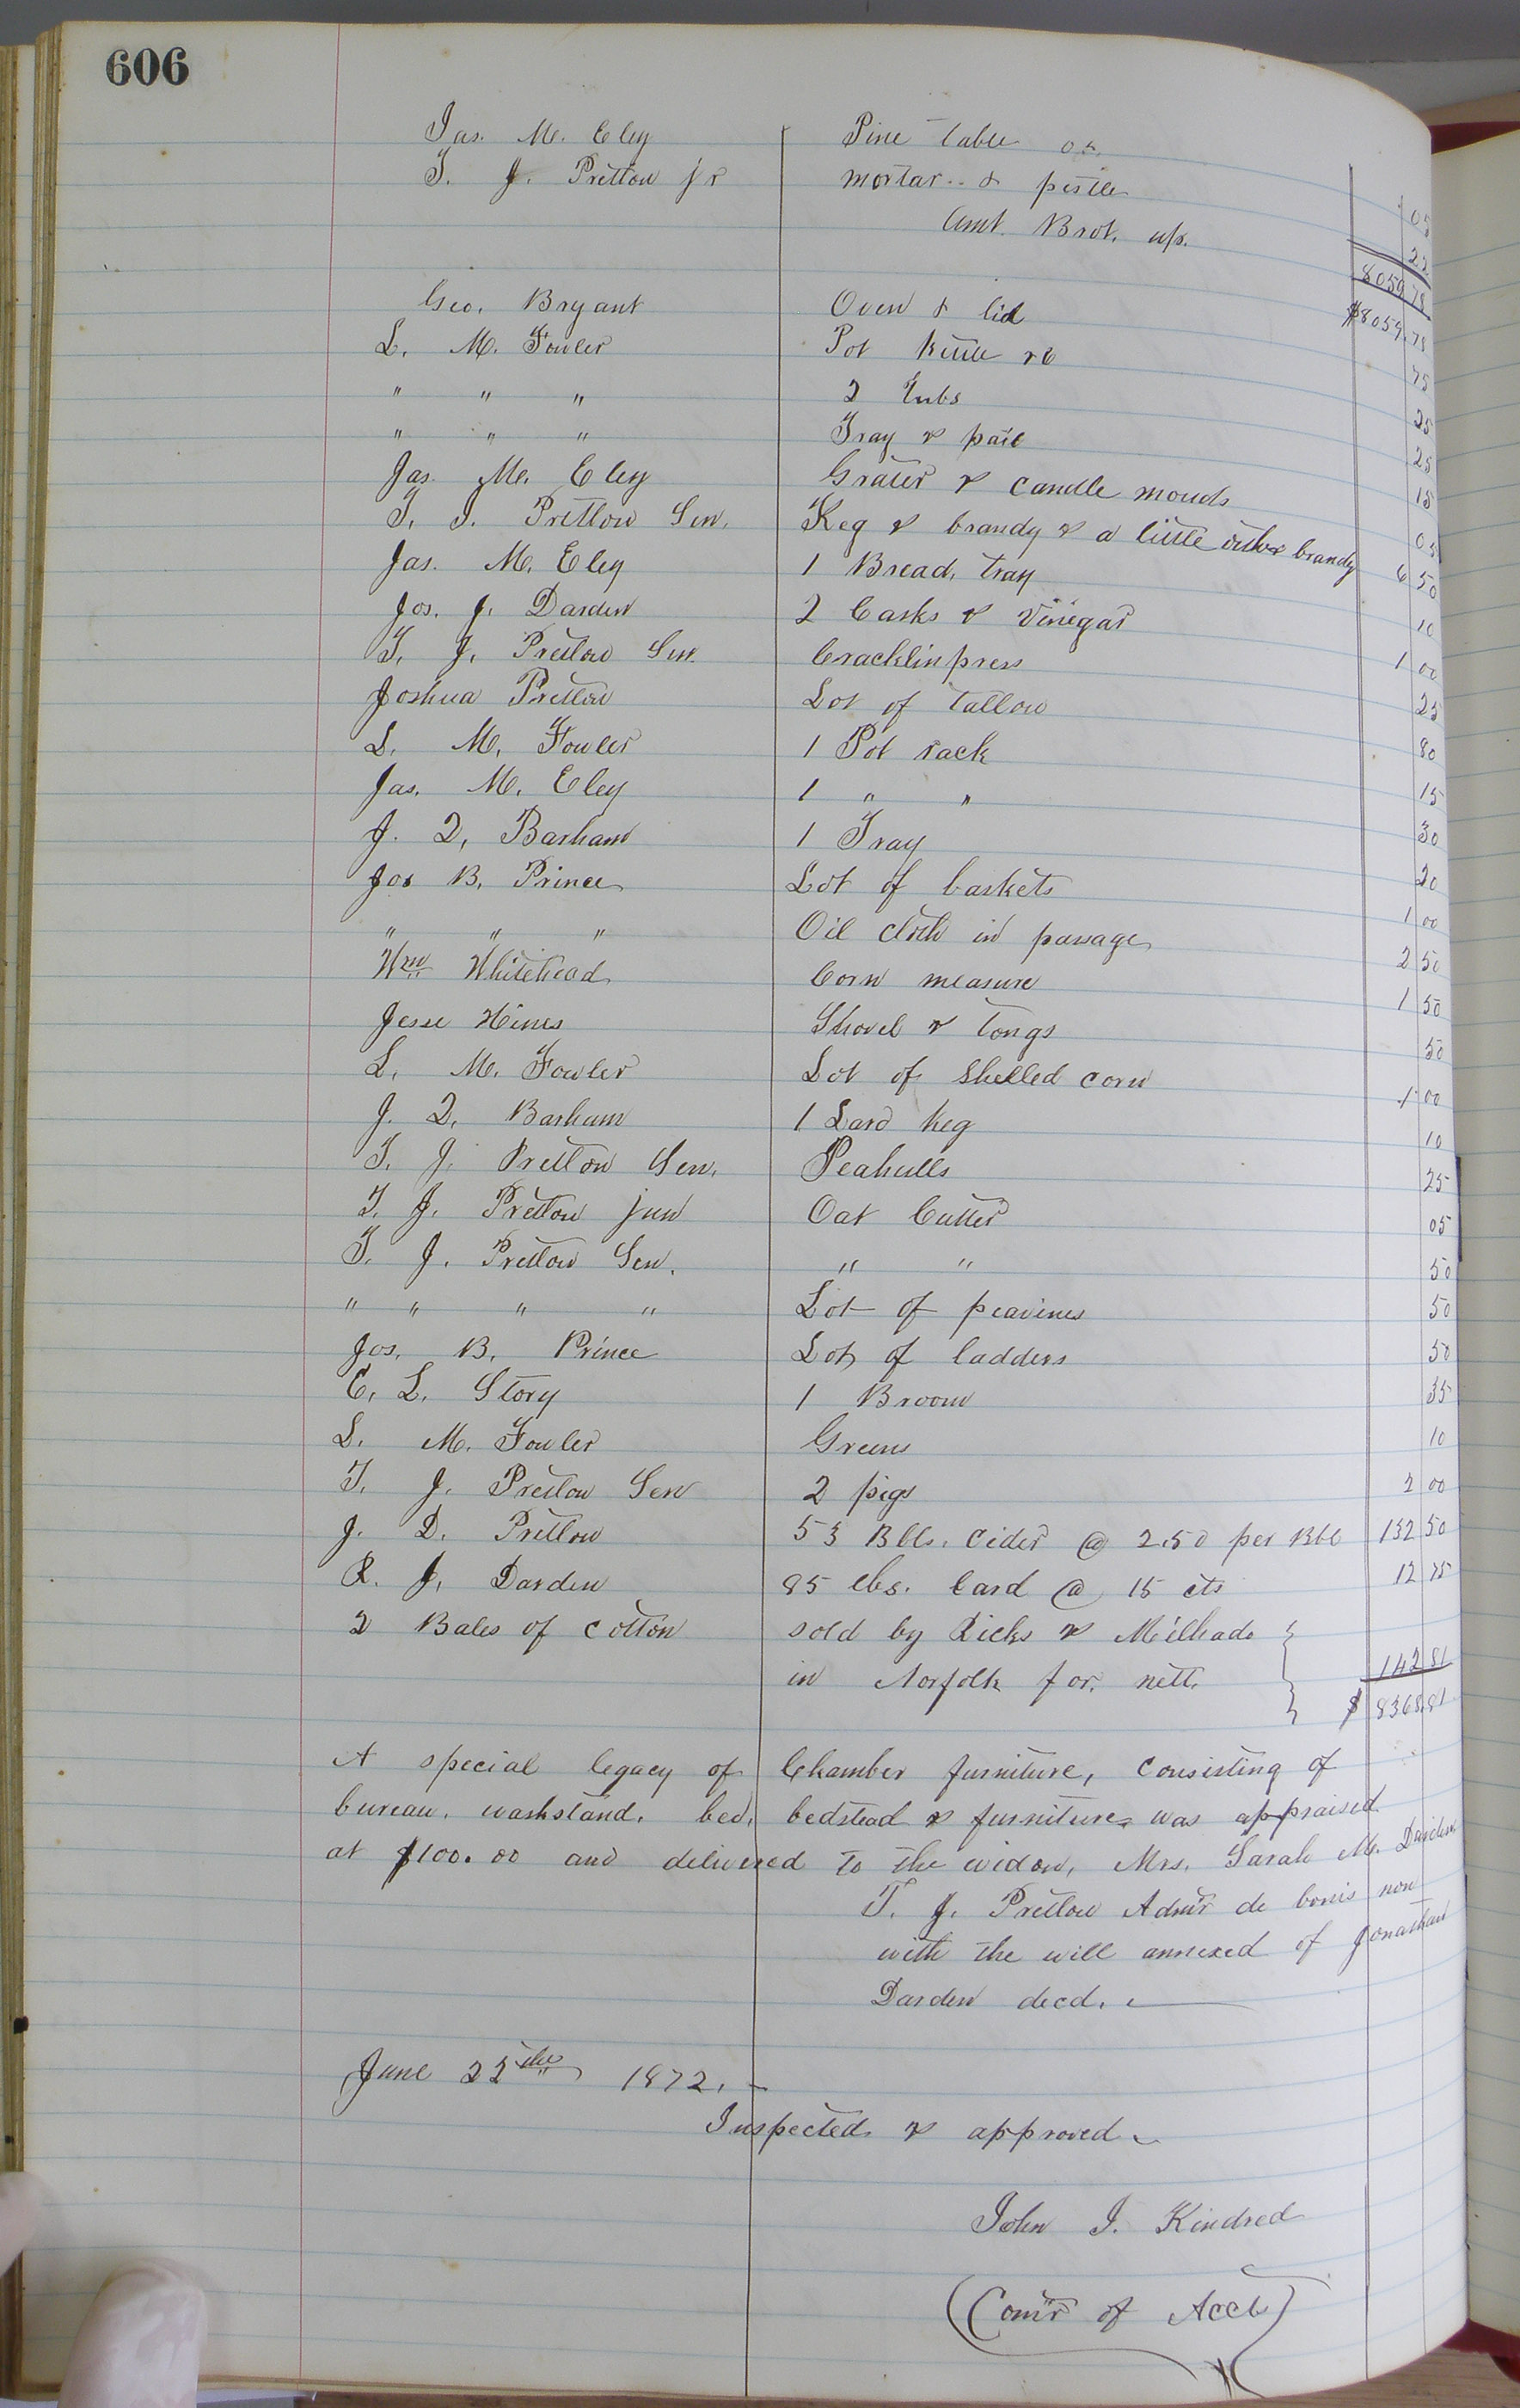 606
Jas. M. Eley Pine table &c. 05
T. J. Pretlow jr mortar & pestle 22
Amt. Brot. up. 8059 78
$8059.78
Geo. Bryant Oven & lid 75
L. M. Fowler Pot kettle &c 25
" " " 2 tubs 25
" " " Tray & pail 15
Jas. M. Eley Grater & candle moulds 05
T. J. Pretlow Sen. Keg & brandy & a little other brandy 6 50
Jas. M. Eley 1 Bread tray 10
Jos. J. Darden 2 Casks & Vinegar 1 00
T. J. Pretlow Sen. Cracklin press 25
Joshua Pretlow Lot of tallow 80
L. M. Fowler 1 Pot rack 15
Jas. M. Eley 1 " " 30
J. Q. Barham 1 Tray 20
Jos B. Prince Lot of baskets 1 00
" " " Oil cloth in passage 2 50
Wm Whitehead Corn measure 1 50
Jesse Hines Shovel & tongs 50
L. M. Fowler Lot of shelled corn 1 00
J. Q. Barham 1 Lard keg 10
T. J. Pretlow Sen. Peahulls 25
T. J. Pretlow jun Oat Cutter 05
T. J. Pretlow Sen. " " 50
" " " " Lot of peavines 50
Jos. B. Prince Lot of ladders 50
E. L. Story 1 Broom 35
L. M. Fowler Greens 10
T. J. Pretlow Sen 2 pigs 2 00
J. D. Pretlow 53 Bbls. Cider @ 2.50 per Bbl 132 50
R. J. Darden 85 lbs. Lard @ 15 cts 12 75
2 Bales of cotton sold by Ricks & Milhado
in Norfolk for nett. 142 81
$ 8368.81
A special legacy of Chamber furniture, consisting of
bureau, washstand, bed, bedstead & furniture was appraised
at $100.00 and delivered to the widow, Mrs. Sarah M. Darden
T. J. Pretlow Admr de bonis non
with the will annexed of Jonathan
Darden decd.
June 25th 1872.
Inspected & approved
John J. Kindred
(Comr of Accts)